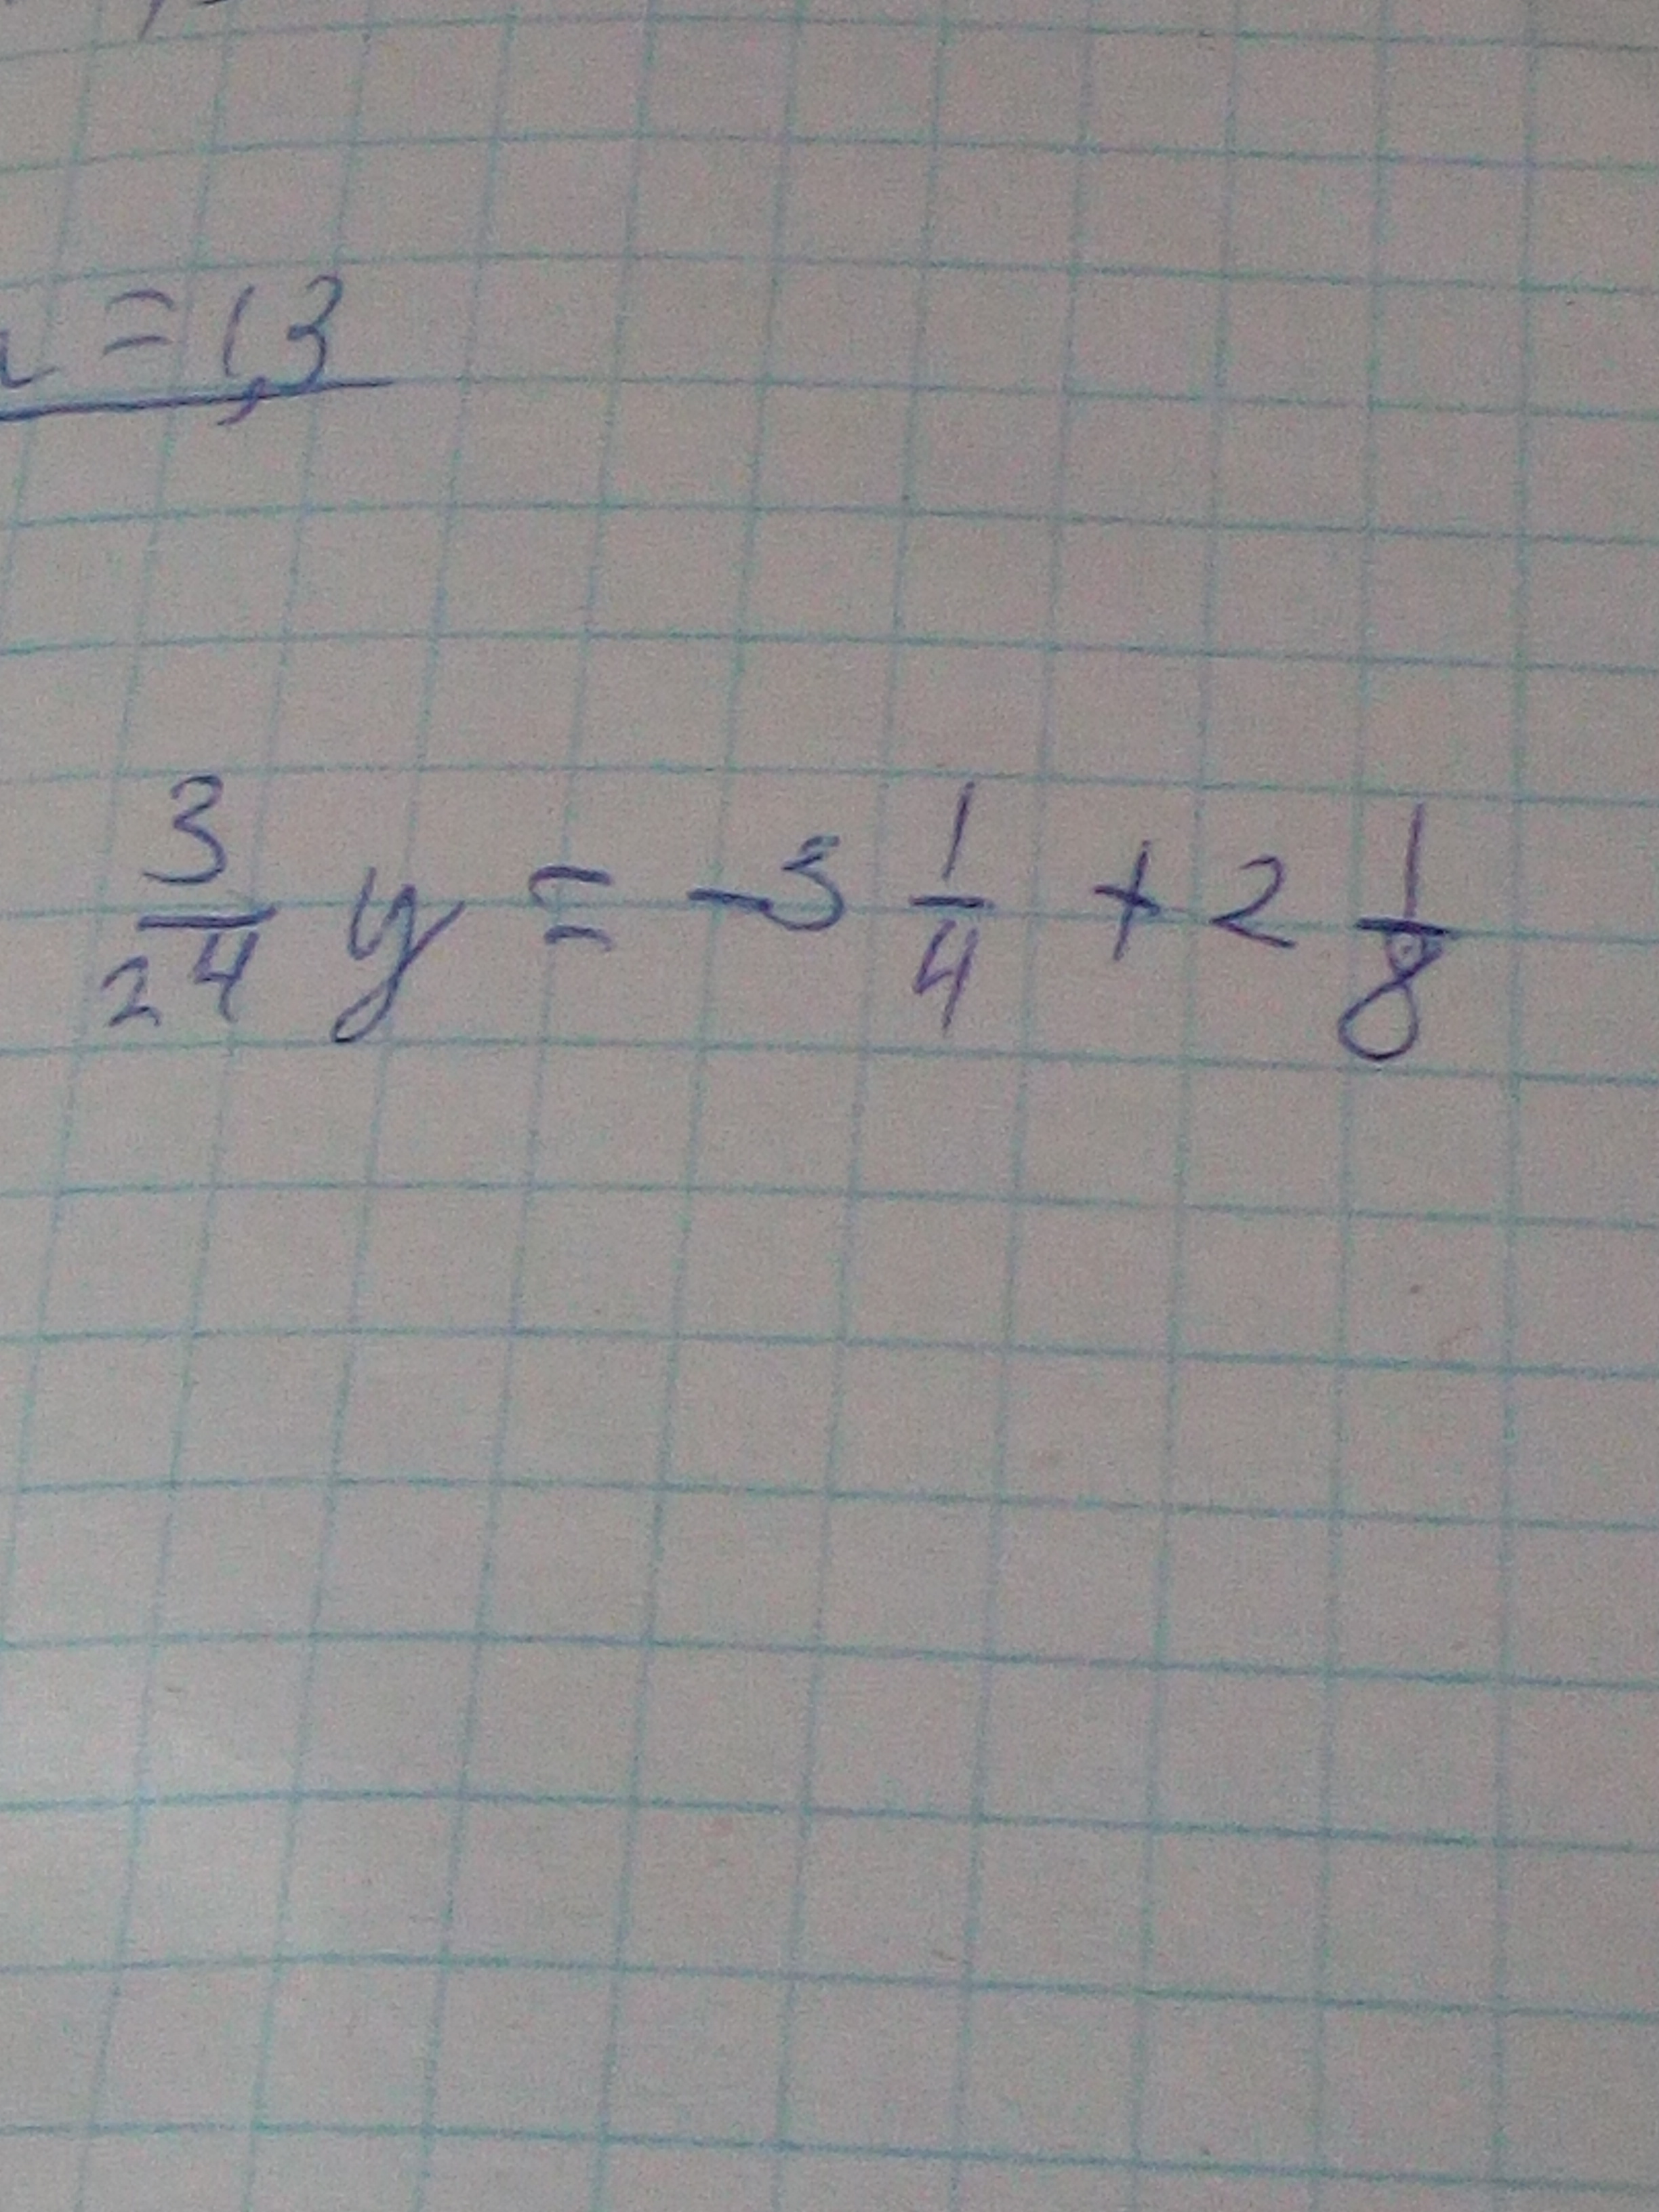 = 1,3
3/24 y = -3 1/4 + 2 1/8